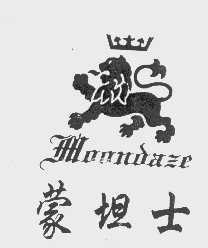 Moondaze
蒙坦士